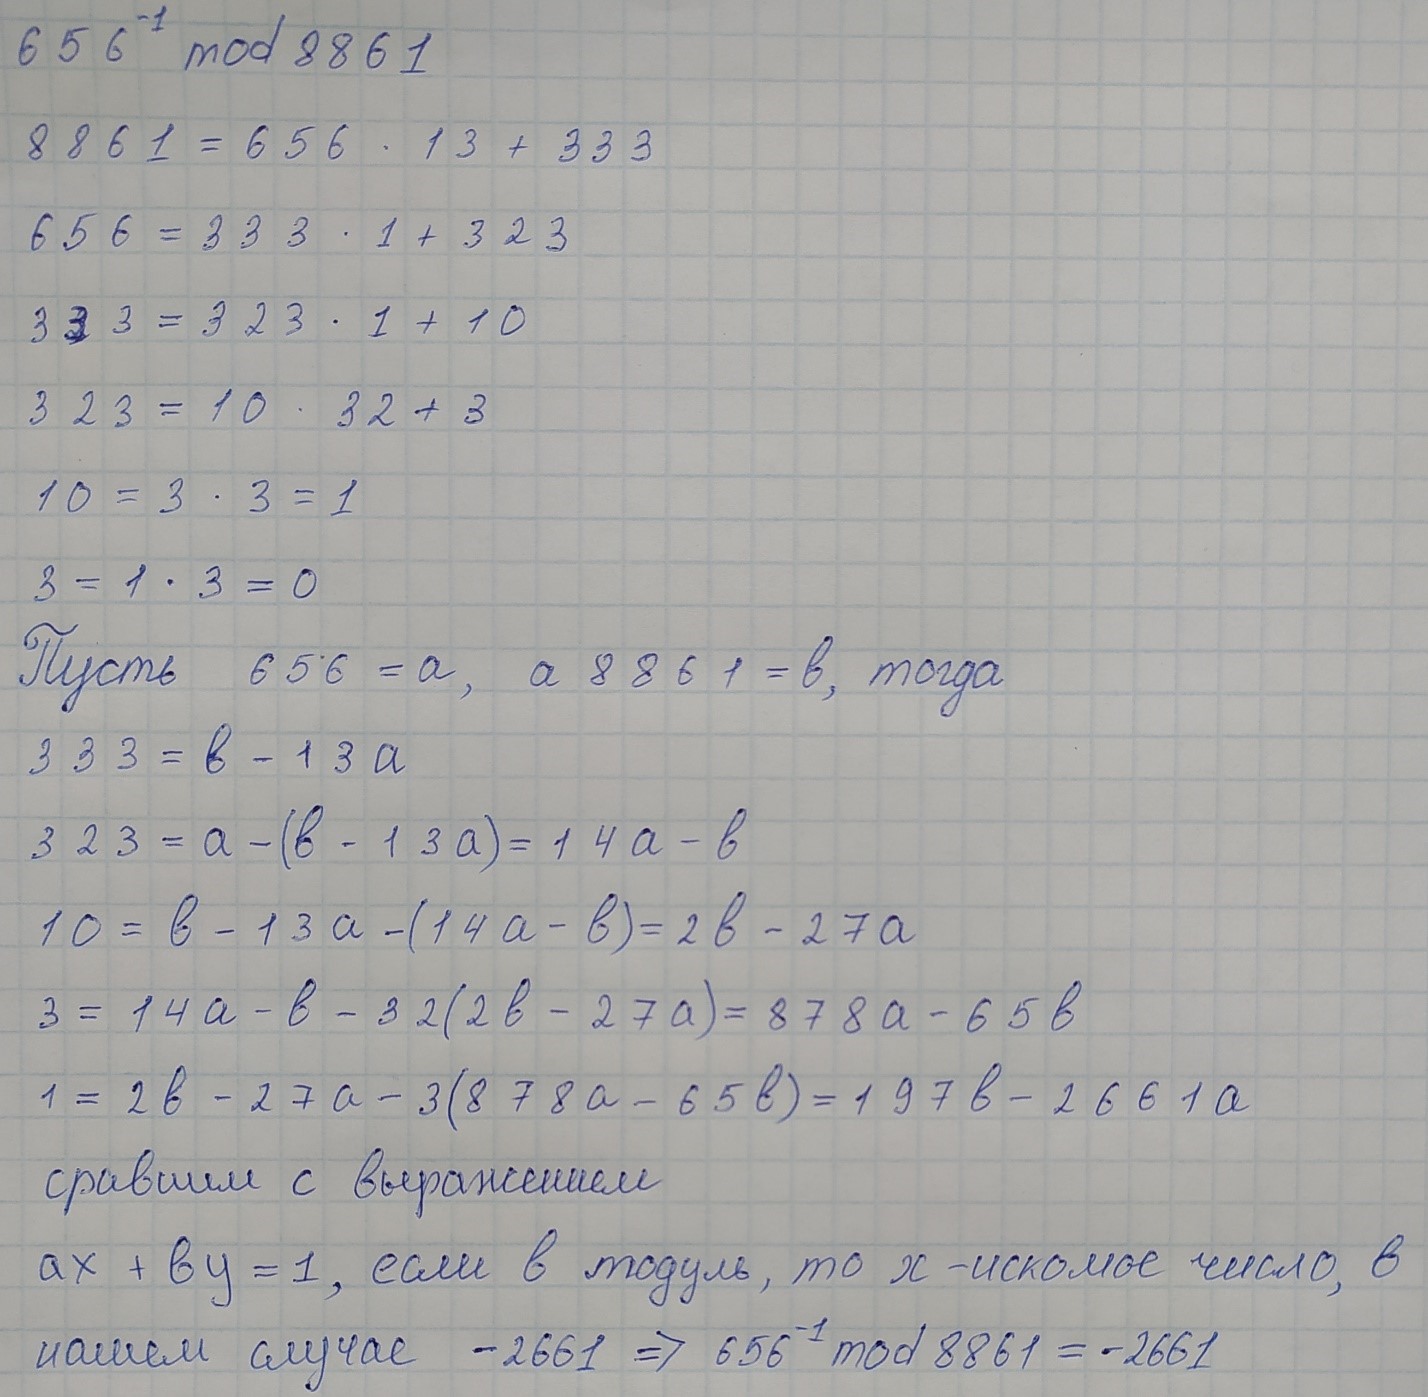 656⁻¹ mod 8861
8861 = 656 · 13 + 333
656 = 333 · 1 + 323
333 = 323 · 1 + 10
323 = 10 · 32 + 3
10 = 3 · 3 = 1
3 = 1 · 3 = 0
Пусть 656 = a, а 8861 = в, тогда
333 = в - 13a
323 = a - (в - 13a) = 14a - в
10 = в - 13a - (14a - в) = 2в - 27a
3 = 14a - в - 32(2в - 27a) = 878a - 65в
1 = 2в - 27a - 3(878a - 65в) = 197в - 2661a
сравним с выражением
ax + вy = 1, если в модуль, то x - искомое число, в
нашем случае -2661 => 656⁻¹ mod 8861 = -2661